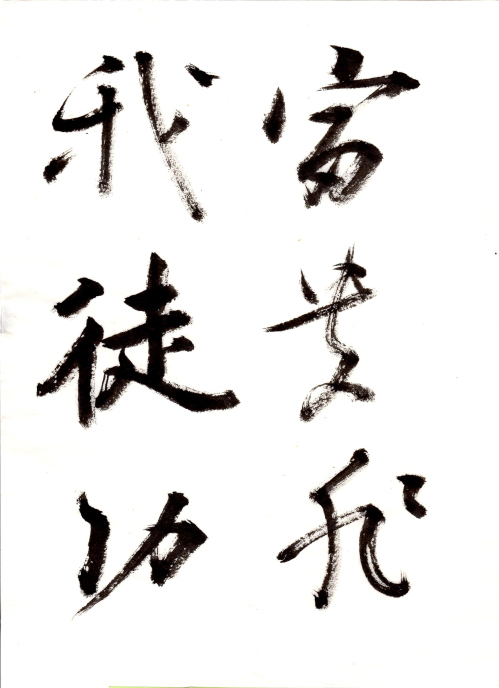 富貴飛
我徒功